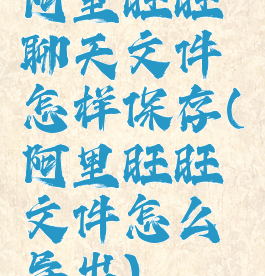 阿里旺旺
聊天文件
怎样保存(
阿里旺旺
文件怎么
导出)